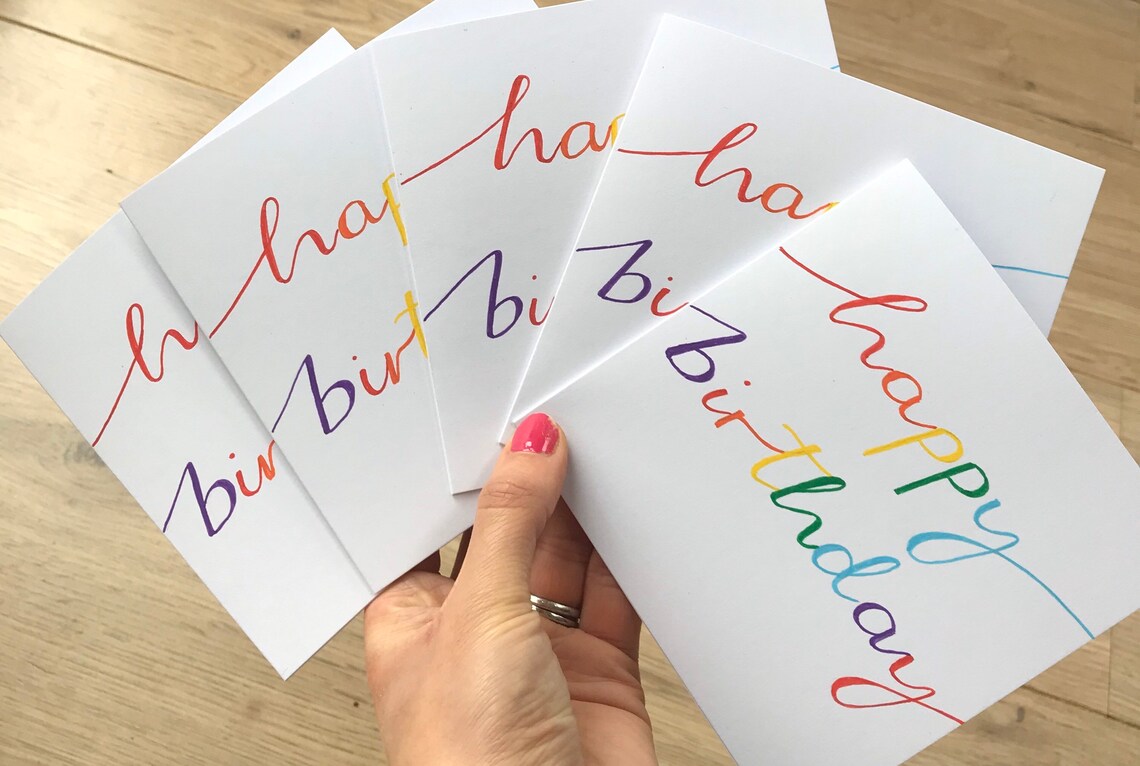 h
bir
hap
birt
ha
bi
ha
bi
happy
birthday